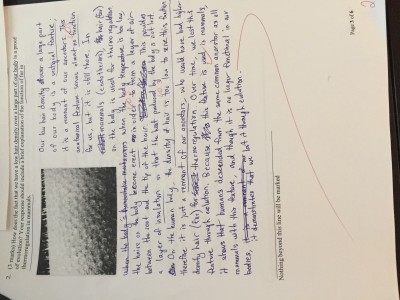 2. (3 marks) How does the fact that we have a low hair density over a large part of our body is a proof
of evolution? Your response should include a brief explanation of the function of the in
thermoregulation in mammals.
Our low hair density above a large part
of our body is a vestigial feature;
it is a remnant of our ancestors. This
anatomical feature serves almost no function
for us, but it is still there. In
mammals (endotherms), the hair (fur)
on the body is used for thermoregulation
when the body temperature is too low
the hairs on the body become erect in order to form a layer of air
between the root and the tip of the hair. This provides
a layer of insulation so that the heat produced by the body is not lost
On the human body, the density of hair is too low to use this feature
therefore it is just a remnant of our ancestors, who would have had higher
density hair (fur) for thermoregulation. Over time, we lost this
feature through evolution. Because this feature is used in mammals,
it shows that humans descended from the same common ancestor as all
mammals with this feature, and though it is no longer functional in our
bodies, it demonstrates that we lost it through evolution.
Nothing beyond this line will be marked
Page 3 of 8
2